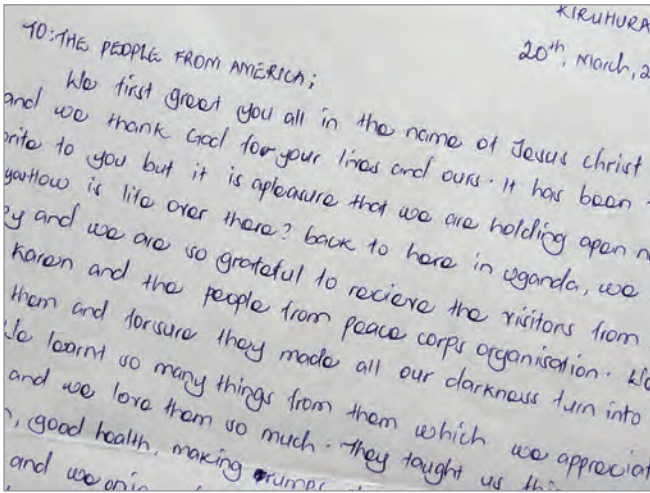 KIRUHURA
20th, March, 2
TO: THE PEOPLE FROM AMERICA;
We first greet you all in the name of Jesus christ
and we thank God for your lives and ours. It has been
write to you but it is apleasure that we are holding apen
you How is life over there? back to here in uganda, we
and we are so grateful to recieve the visitors from
Karen and the people from peace corps organisation. We
them and forsure they made all our darkness turn into
We learnt so many things from them which we appreciat
and we love them so much. They taught us
good health, making
and we